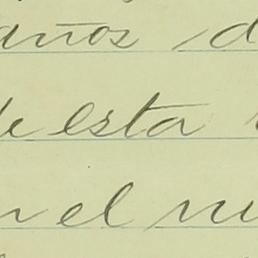 años d
de esta
en el nu